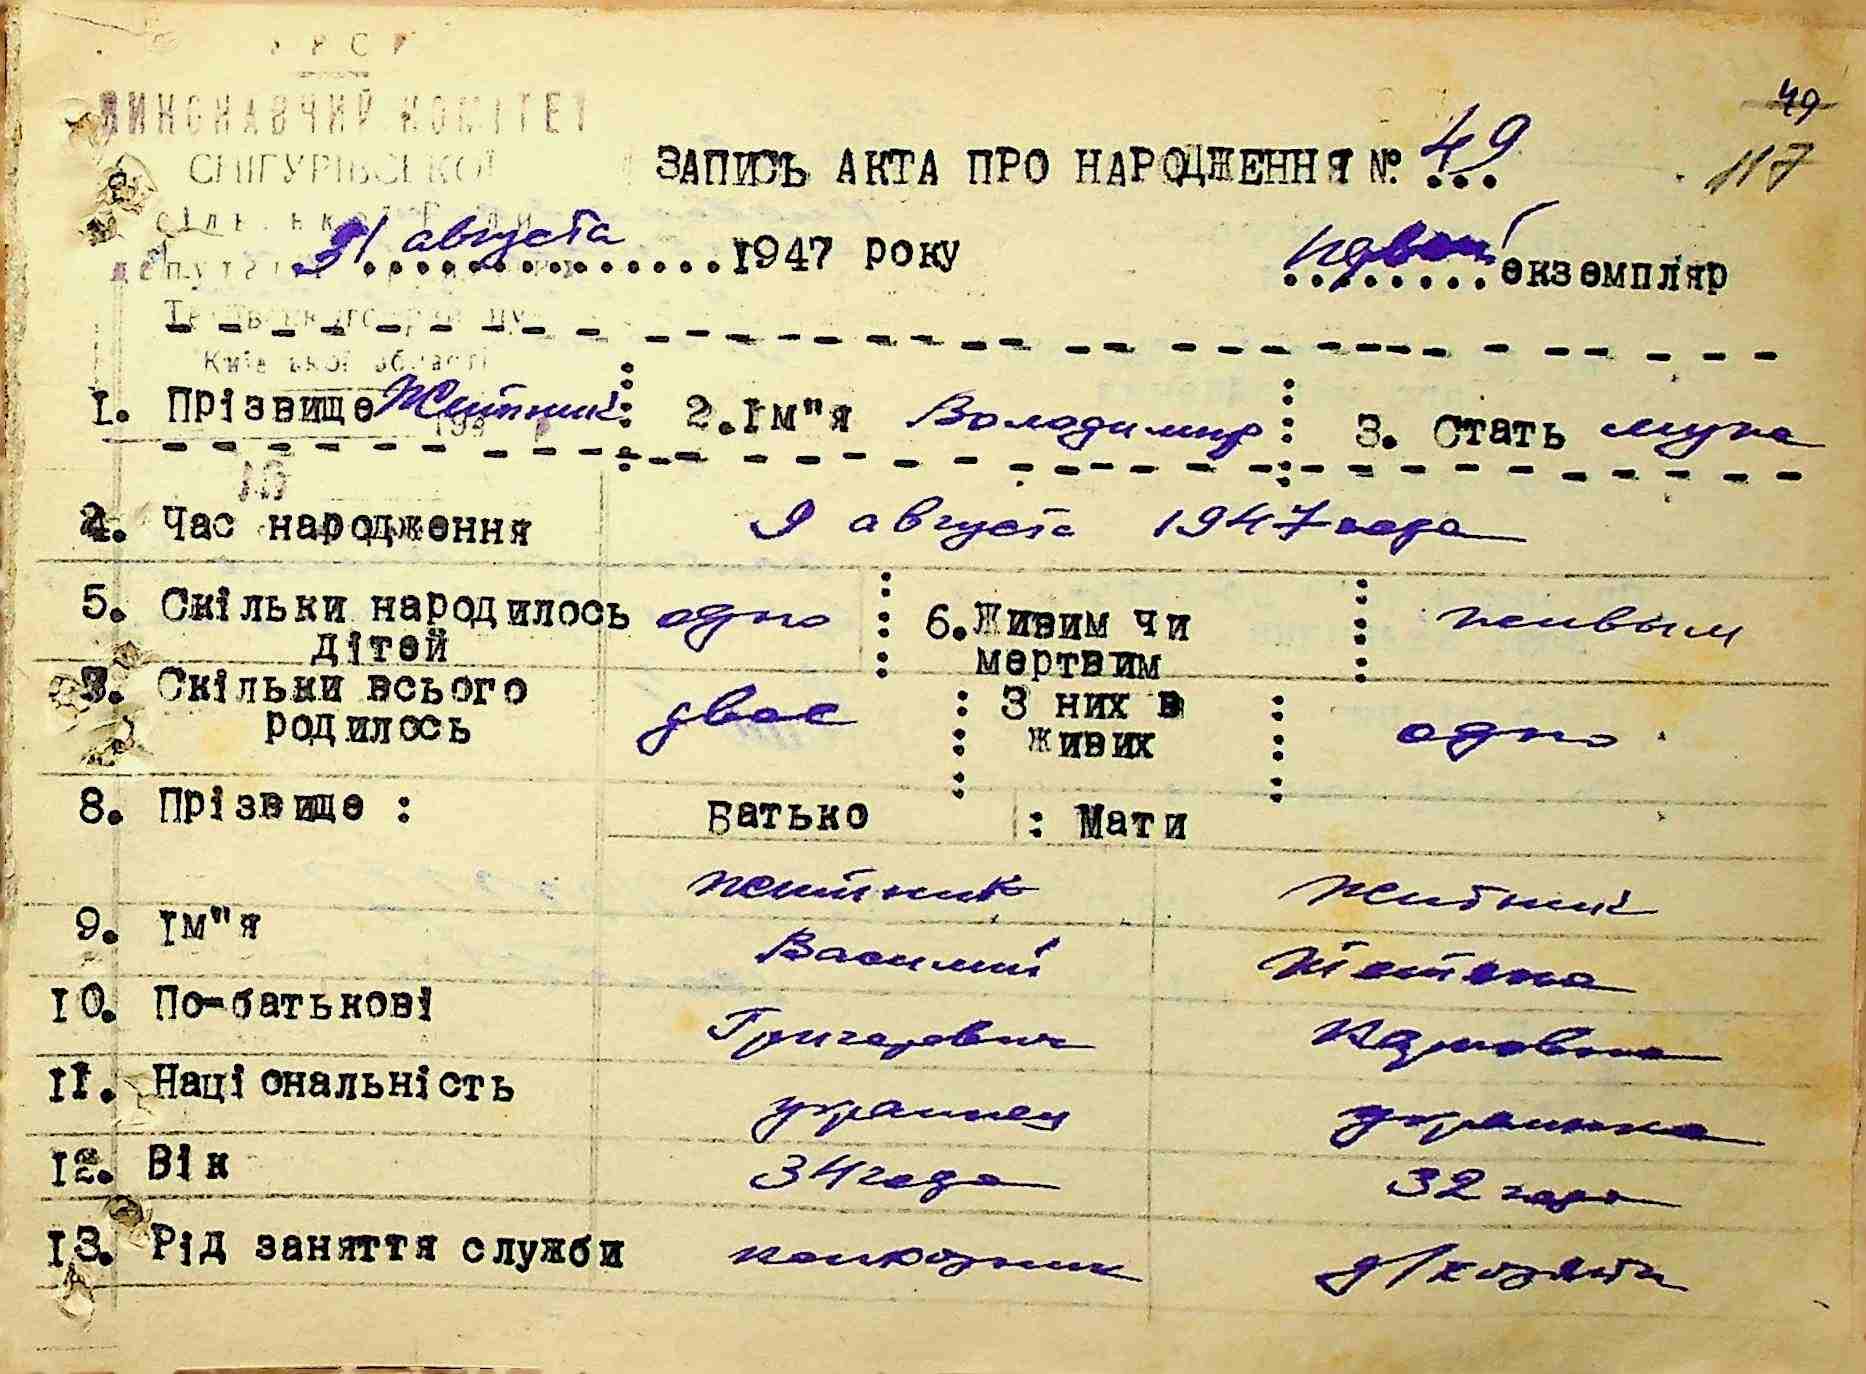 УРСР
ВИКОНАВЧИЙ КОМІТЕТ
СНІГУРІВСЬКОЇ
49
117
ЗАПИСЬ АКТА ПРО НАРОДЖЕННЯ №. 49
31 августа 1947 року
первый екземпляр
Київської області
1. Прізвище Житник 2. Ім"я Володимир 3. Стать мужс
4. Час народження 9 августа 1947 года
5. Скільки народилось дітей одно 6. Живим чи мертвим живым
7. Скільки всього родилось двое З них в живих одно
8. Прізвище : Батько : Мати
Житник Житник
9. Ім"я Василий Тетяна
10. По-батькові Григоревич
11. Національність украинец украинка
12. Вік 34 года 32 года
13. Рід заняття служби колхозник д/хозяйк